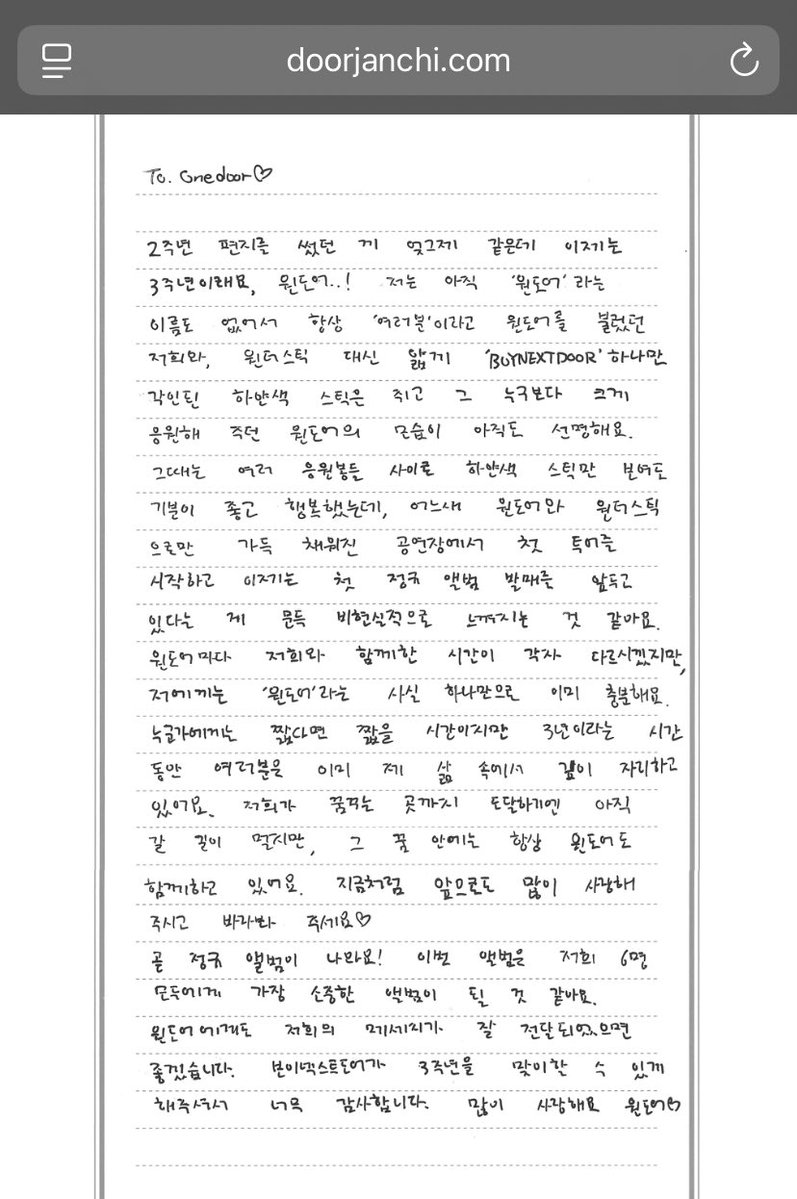 doorjanchi.com
To. Onedoor♡
2주년 편지를 썼던 게 엊그제 같은데 이제는
3주년이래요, 원도어..! 저는 아직 '원도어' 라는
이름도 없어서 항상 '여러분'이라고 원도어를 불렀던
저희와, 원더스틱 대신 얇게 'BOYNEXTDOOR' 하나만
각인된 하얀색 스틱은 쥐고 그 누구보다 크게
응원해 주던 원도어의 모습이 아직도 선명해요.
그때는 여러 응원봉들 사이로 하얀색 스틱만 보여도
기분이 좋고 행복했는데, 어느새 원도어와 원더스틱
으로만 가득 채워진 공연장에서 첫 투어를
시작하고 이제는 첫 정규 앨범 발매를 앞두고
있다는 게 문득 비현실적으로 느껴지는 것 같아요.
원도어마다 저희와 함께한 시간이 각자 다르시겠지만,
저에게는 '원도어'라는 사실 하나만으로 이미 충분해요.
누군가에게는 짧다면 짧을 시간이지만 3년이라는 시간
동안 여러분은 이미 제 삶 속에서 깊이 자리하고
있어요. 저희가 꿈꾸는 곳까지 도달하기엔 아직
갈 길이 멀지만, 그 꿈 안에는 항상 원도어도
함께하고 있어요. 지금처럼 앞으로도 많이 사랑해
주시고 바라봐 주세요♡
곧 정규 앨범이 나와요! 이번 앨범은 저희 6명
모두에게 가장 소중한 앨범이 될 것 같아요.
원도어에게도 저희의 메세지가 잘 전달되었으면
좋겠습니다. 보이넥스트도어가 3주년을 맞이할 수 있게
해주셔서 너무 감사합니다. 많이 사랑해요 원도어♡